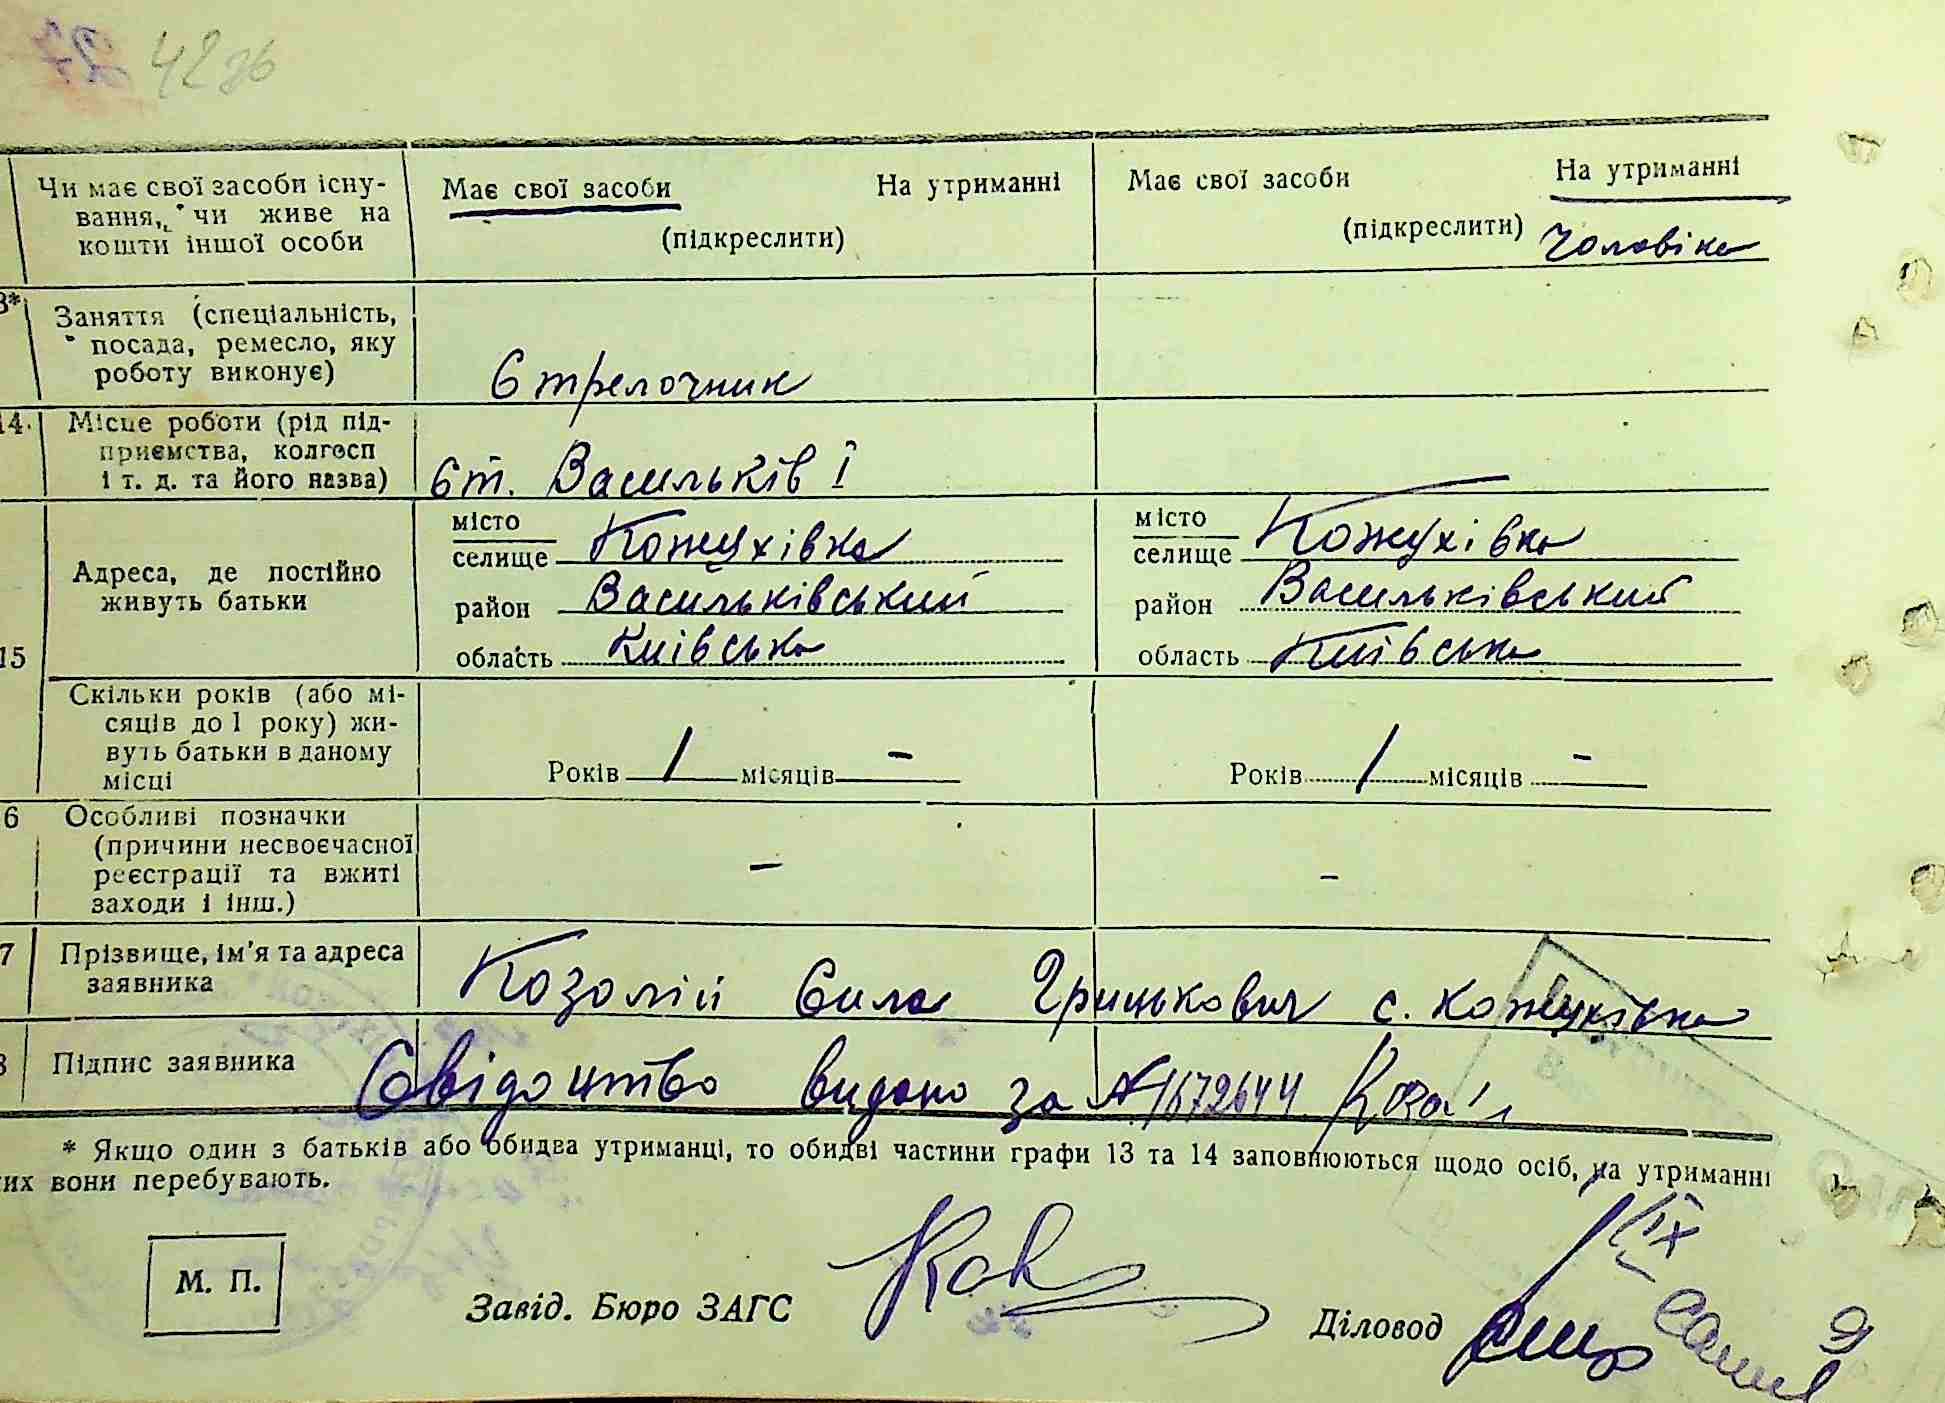 42зв
Чи має свої засоби існу-
вання, чи живе на
кошти іншої особи
Має свої засоби На утриманні
(підкреслити)
Має свої засоби На утриманні
(підкреслити) Чоловіка
Заняття (спеціальність,
посада, ремесло, яку
роботу виконує)
Стрелочник
14. Місце роботи (рід під-
приємства, колгосп
і т. д. та його назва)
Ст. Васильків І
15
Адреса, де постійно
живуть батьки
місто
селище Кожухівка
район Васильківський
область Київська
місто
селище Кожухівка
район Васильківський
область Київська
Скільки років (або мі-
сяців до 1 року) жи-
вуть батьки в даному
місці
Років 1 місяців –
Років 1 місяців –
6 Особливі позначки
(причини несвоєчасної
реєстрації та вжиті
заходи і інш.)
–
–
7 Прізвище, ім'я та адреса
заявника
Козолій Сила Грицькович с. Кожухівка
8 Підпис заявника
Свідоцтво видано за № 1672644
* Якщо один з батьків або обидва утриманці, то обидві частини графи 13 та 14 заповнюються щодо осіб, на утриманні
яких вони перебувають.
М. П.
Завід. Бюро ЗАГС
Діловод